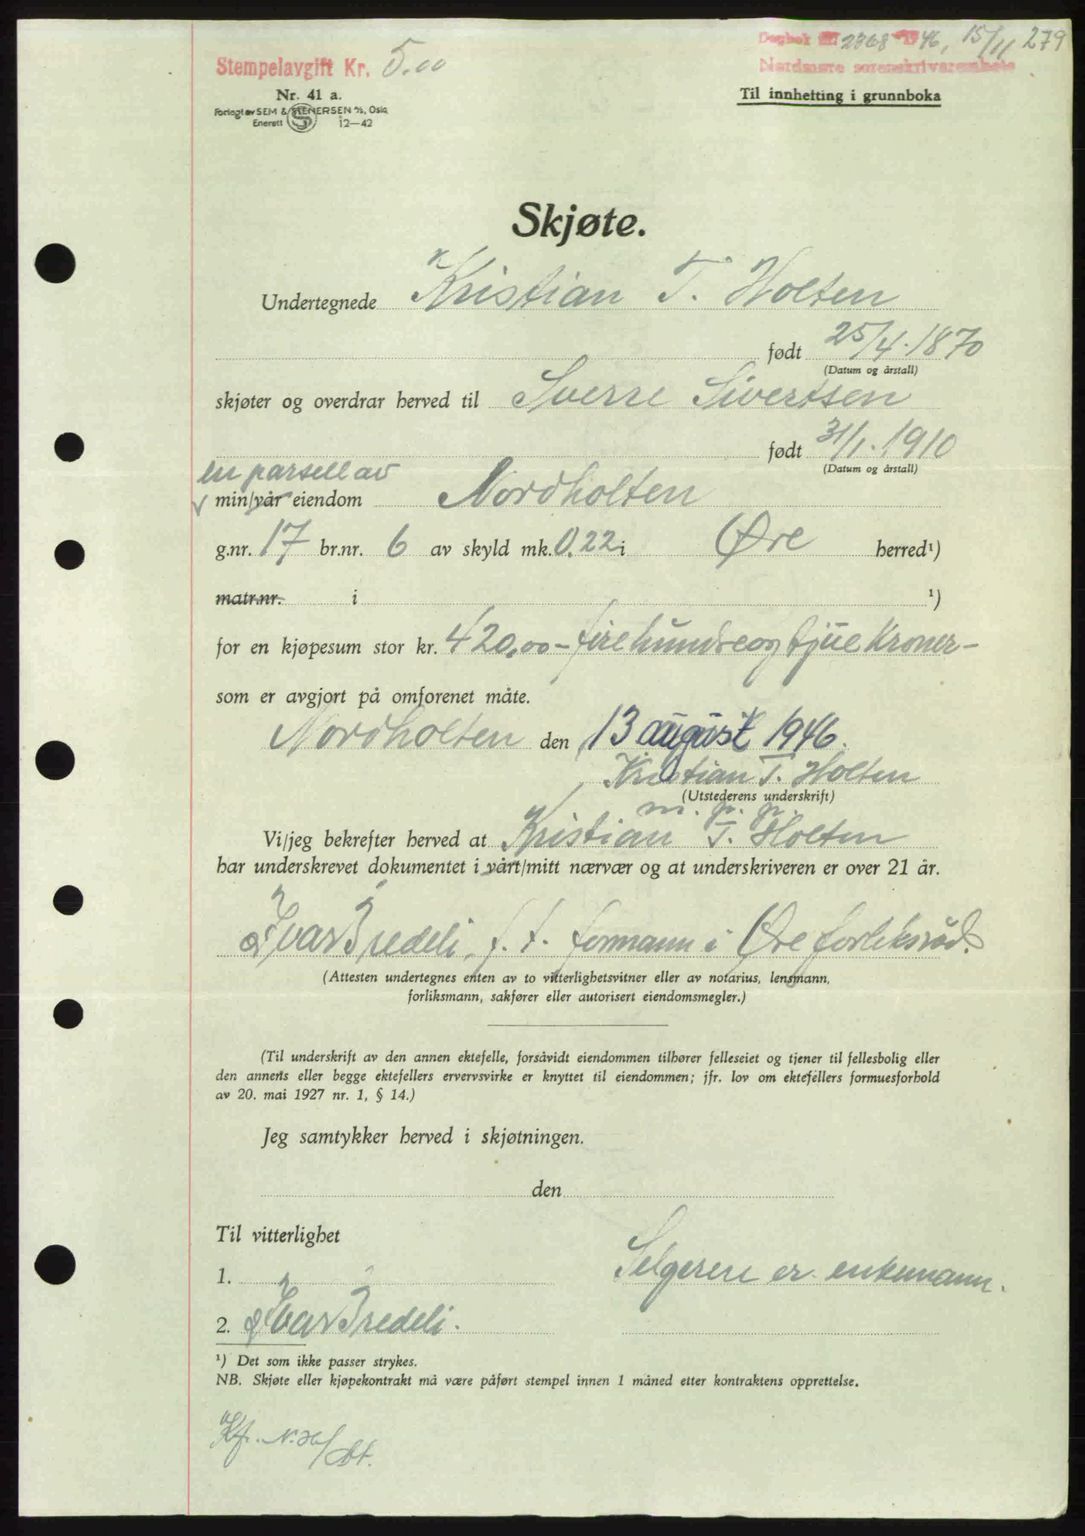 Dagbok nr. 2368 1946, 15/11 279
Stempelavgift Kr. 5.00
Nordmøre sorenskrivarembete
Nr. 41 a.
Til innhefting i grunnboka
Forlagt av SEM & STENERSEN A/S, Oslo
Enerett S 12—42
Skjøte.
Undertegnede Kristian T. Holten
født 25/4.1870
(Datum og årstall)
skjøter og overdrar herved til Sverre Sivertsen
født 31/1.1910
(Datum og årstall)
en parsell av
min/vår eiendom Nordholten
g.nr. 17 br.nr. 6 av skyld mk. 0.22 i Øre herred¹)
matr.nr. i ¹)
for en kjøpesum stor kr. 420,00 – firehundreogtjue kroner –
som er avgjort på omforenet måte.
Nordholten den 13 august 1946.
Kristian T. Holten
(Utstederens underskrift)
m. p. p.
Vi/jeg bekrefter herved at Kristian T. Holten
har underskrevet dokumentet i vårt/mitt nærvær og at underskriveren er over 21 år.
Ivar Bredeli, f. t. formann i Øre forliksråd.
(Attesten undertegnes enten av to vitterlighetsvitner eller av notarius, lensmann,
forliksmann, sakfører eller autorisert eiendomsmegler.)
(Til underskrift av den annen ektefelle, forsåvidt eiendommen tilhører felleseiet og tjener til fellesbolig eller
den annens eller begge ektefellers ervervsvirke er knyttet til eiendommen; jfr. lov om ektefellers formuesforhold
av 20. mai 1927 nr. 1, § 14.)
Jeg samtykker herved i skjøtningen.
den
Til vitterlighet
1. Selgeren er enkemann.
2. Ivar Bredeli.
¹) Det som ikke passer strykes.
NB. Skjøte eller kjøpekontrakt må være påført stempel innen 1 måned etter kontraktens opprettelse.